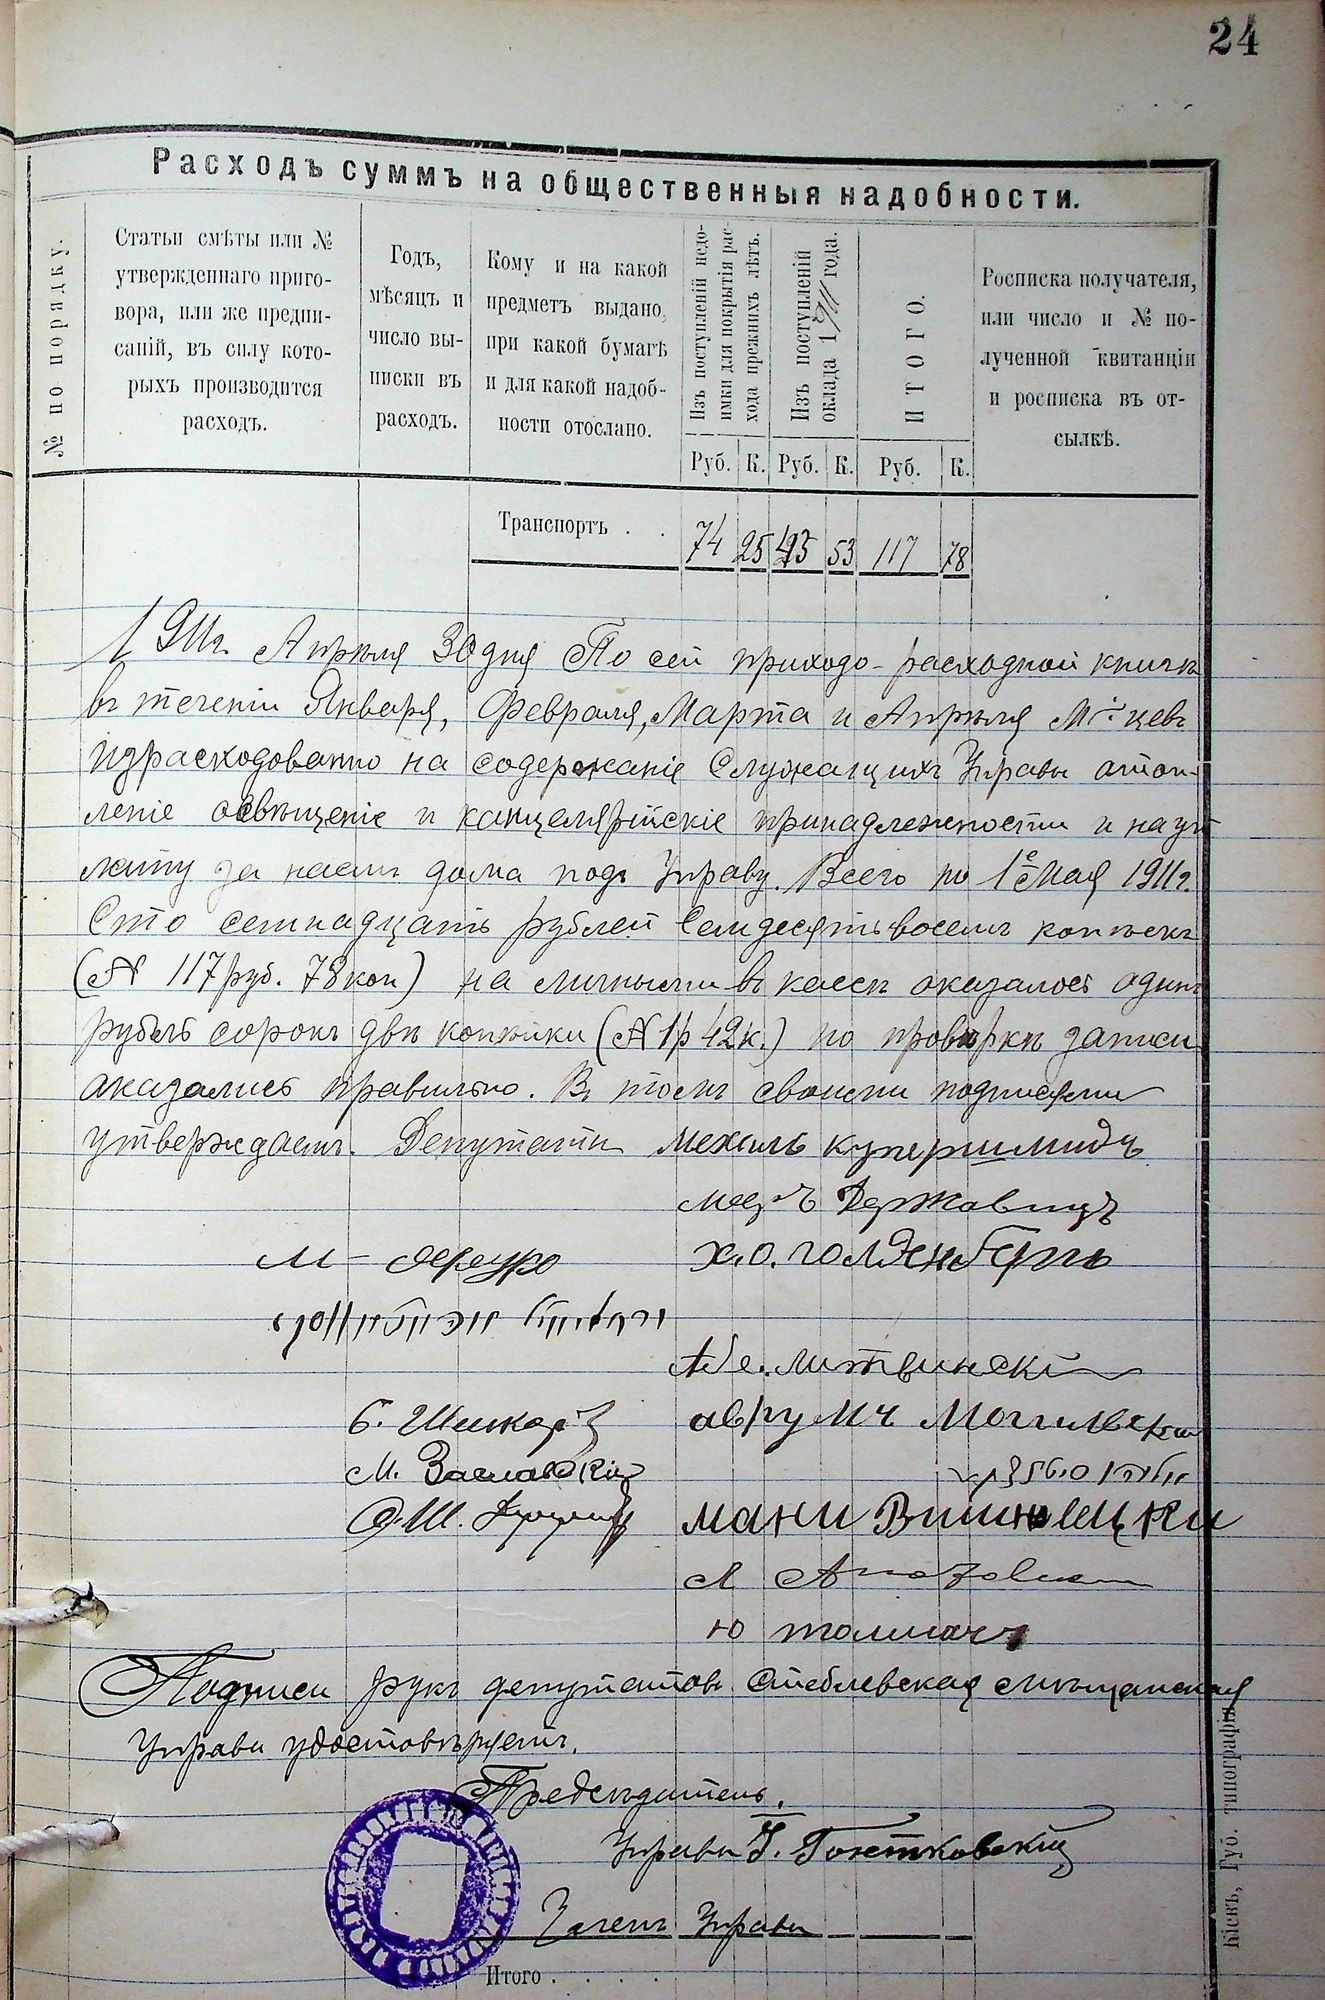 24
Расходъ суммъ на общественныя надобности.
№ по порядку.
Статьи смѣты или №
утвержденнаго приго-
вора, или же предпи-
саній, въ силу кото-
рыхъ производится
расходъ.
Годъ,
мѣсяцъ и
число вы-
писки въ
расходъ.
Кому и на какой
предметъ выдано,
при какой бумагѣ
и для какой надоб-
ности отослано.
Изъ поступленій недо-
имки для покрытія рас-
хода прежнихъ лѣтъ.
Изъ поступленій
оклада 1911 года.
ИТОГО.
Росписка получателя,
или число и № по-
лученной квитанціи
и росписка въ от-
сылкѣ.
Руб. К. Руб. К. Руб. К.
Транспортъ . . 74 25 43 53 117 78
1911г. Апрѣля 30 дня По сей приходо-расходной книгѣ
въ теченіи Января, Февраля, Марта и Апрѣля М-цевъ
израсходованно на содержаніе Служащихъ Управы отоп-
леніе освѣщеніе и канцелярійскіе принадлежности и
за наемъ дома подъ Управу. Всего по 1е Мая 1911г.
Сто семнадцать рублей Семдесятъ восемь копѣекъ
(№ 117 руб. 78 коп) на личности въ кассѣ оказалось одинъ
рубль сорокъ двѣ копѣйки (№ 1р 42 к.) по провѣркѣ записи
оказались правильно. Въ томъ своими подписями
утверждаемъ. Депутаты Мехель Купершмидъ
Державецъ
Х.О. Голденбергъ
Абе. Литвинскій
М. Заславскій
Аврумъ Могилевскій
Мани Вишновецки
Ю Толмачъ
Подписи рукъ депутатовъ Стеблевская мѣщанская
Управа удостовѣряетъ.
Предсѣдатель
Управы
Членъ Управы
Итого . . . .
Кіевъ, Губ. типографія.